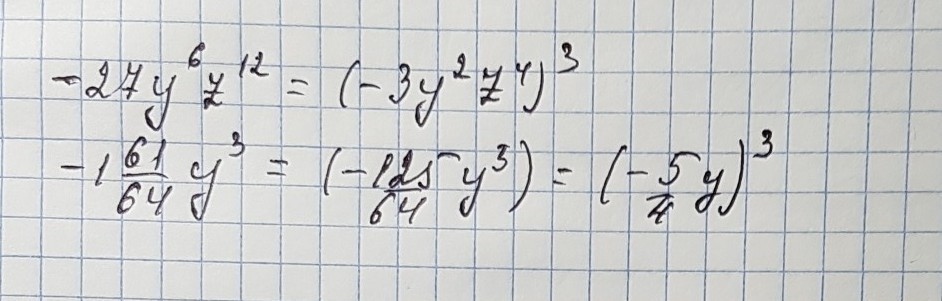 -27y⁶z¹² = (-3y²z⁴)³
-1 61/64 y³ = (-125/64 y³) = (-5/4 y)³